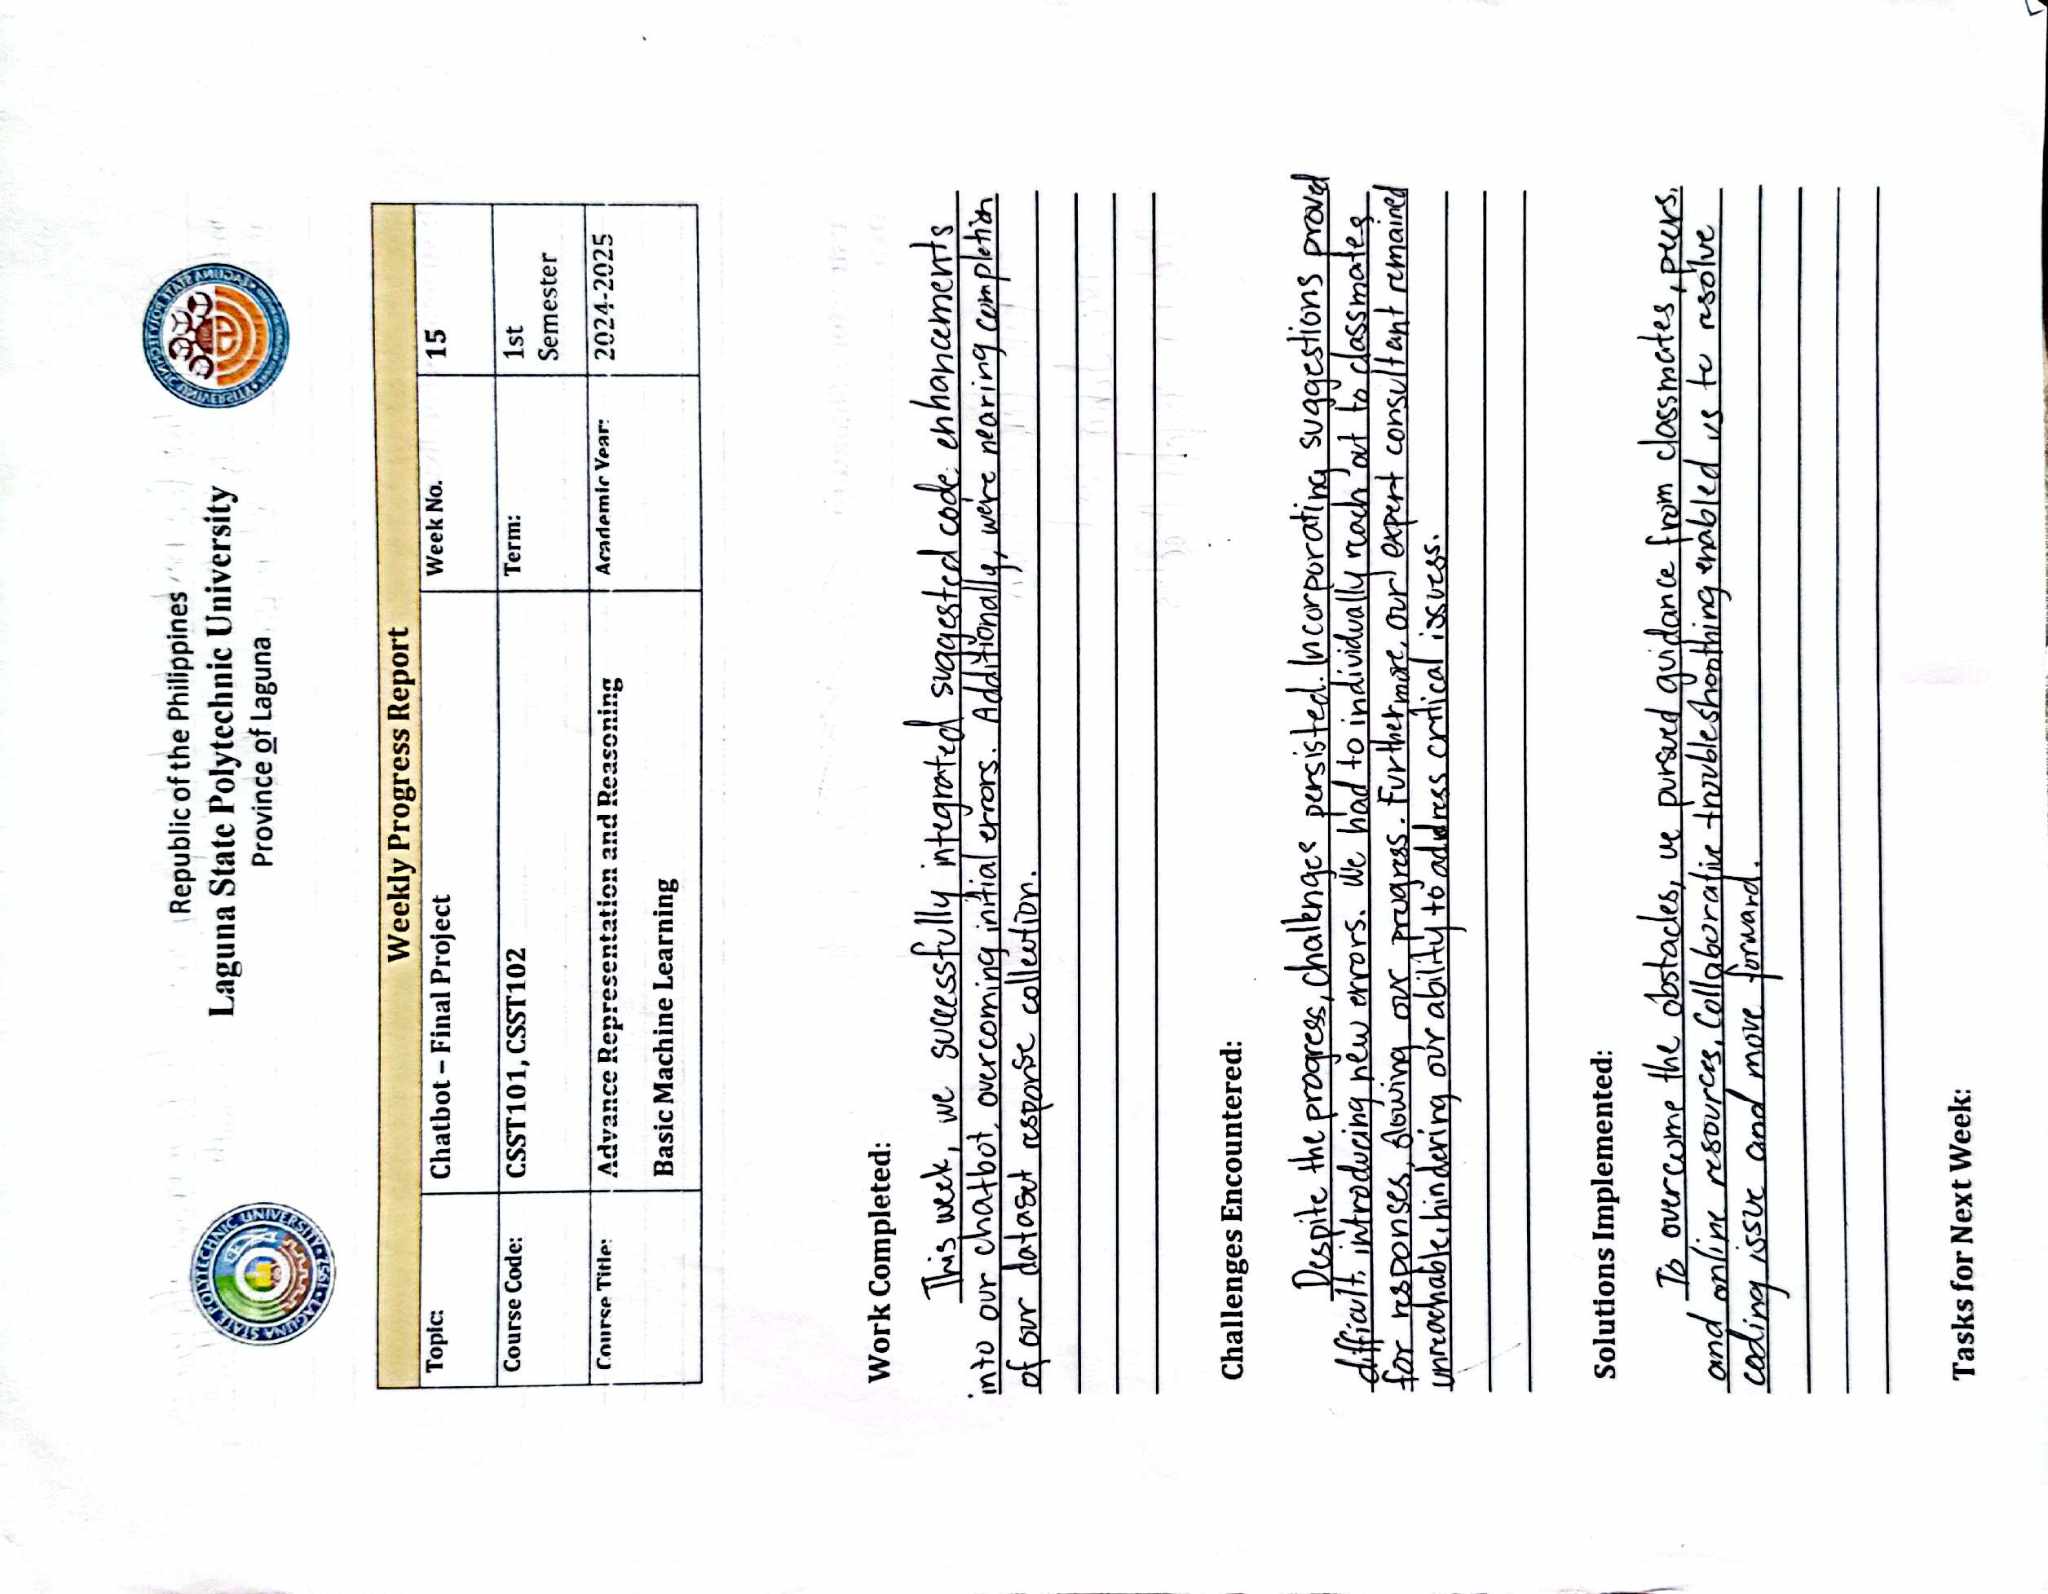 Republic of the Philippines
Laguna State Polytechnic University
Province of Laguna
LAGUNA STATE POLYTECHNIC UNIVERSITY • 1952 •
Weekly Progress Report
Topic: Chatbot – Final Project Week No. 15
Course Code: CSST101, CSST102 Term: 1st Semester
Course Title: Advance Representation and Reasoning Academic Year: 2024-2025
Basic Machine Learning
Work Completed:
This week, we sucessfully integrated suggested code enhancements
into our chatbot, overcoming initial errors. Additionally, we're nearing completion
of our dataset response collection.
Challenges Encountered:
Despite the progress, challenges persisted. Incorporating suggestions proved
difficult, introducing new errors. We had to individually reach out to classmates
for responses, slowing our progress. Furthermore, our expert consultant remained
unreachable, hindering our ability to address critical issues.
Solutions Implemented:
To overcome the obstacles, we pursued guidance from classmates, peers,
and online resources. Collaborative troubleshoothing enabled us to resolve
coding issue and move forward.
Tasks for Next Week: